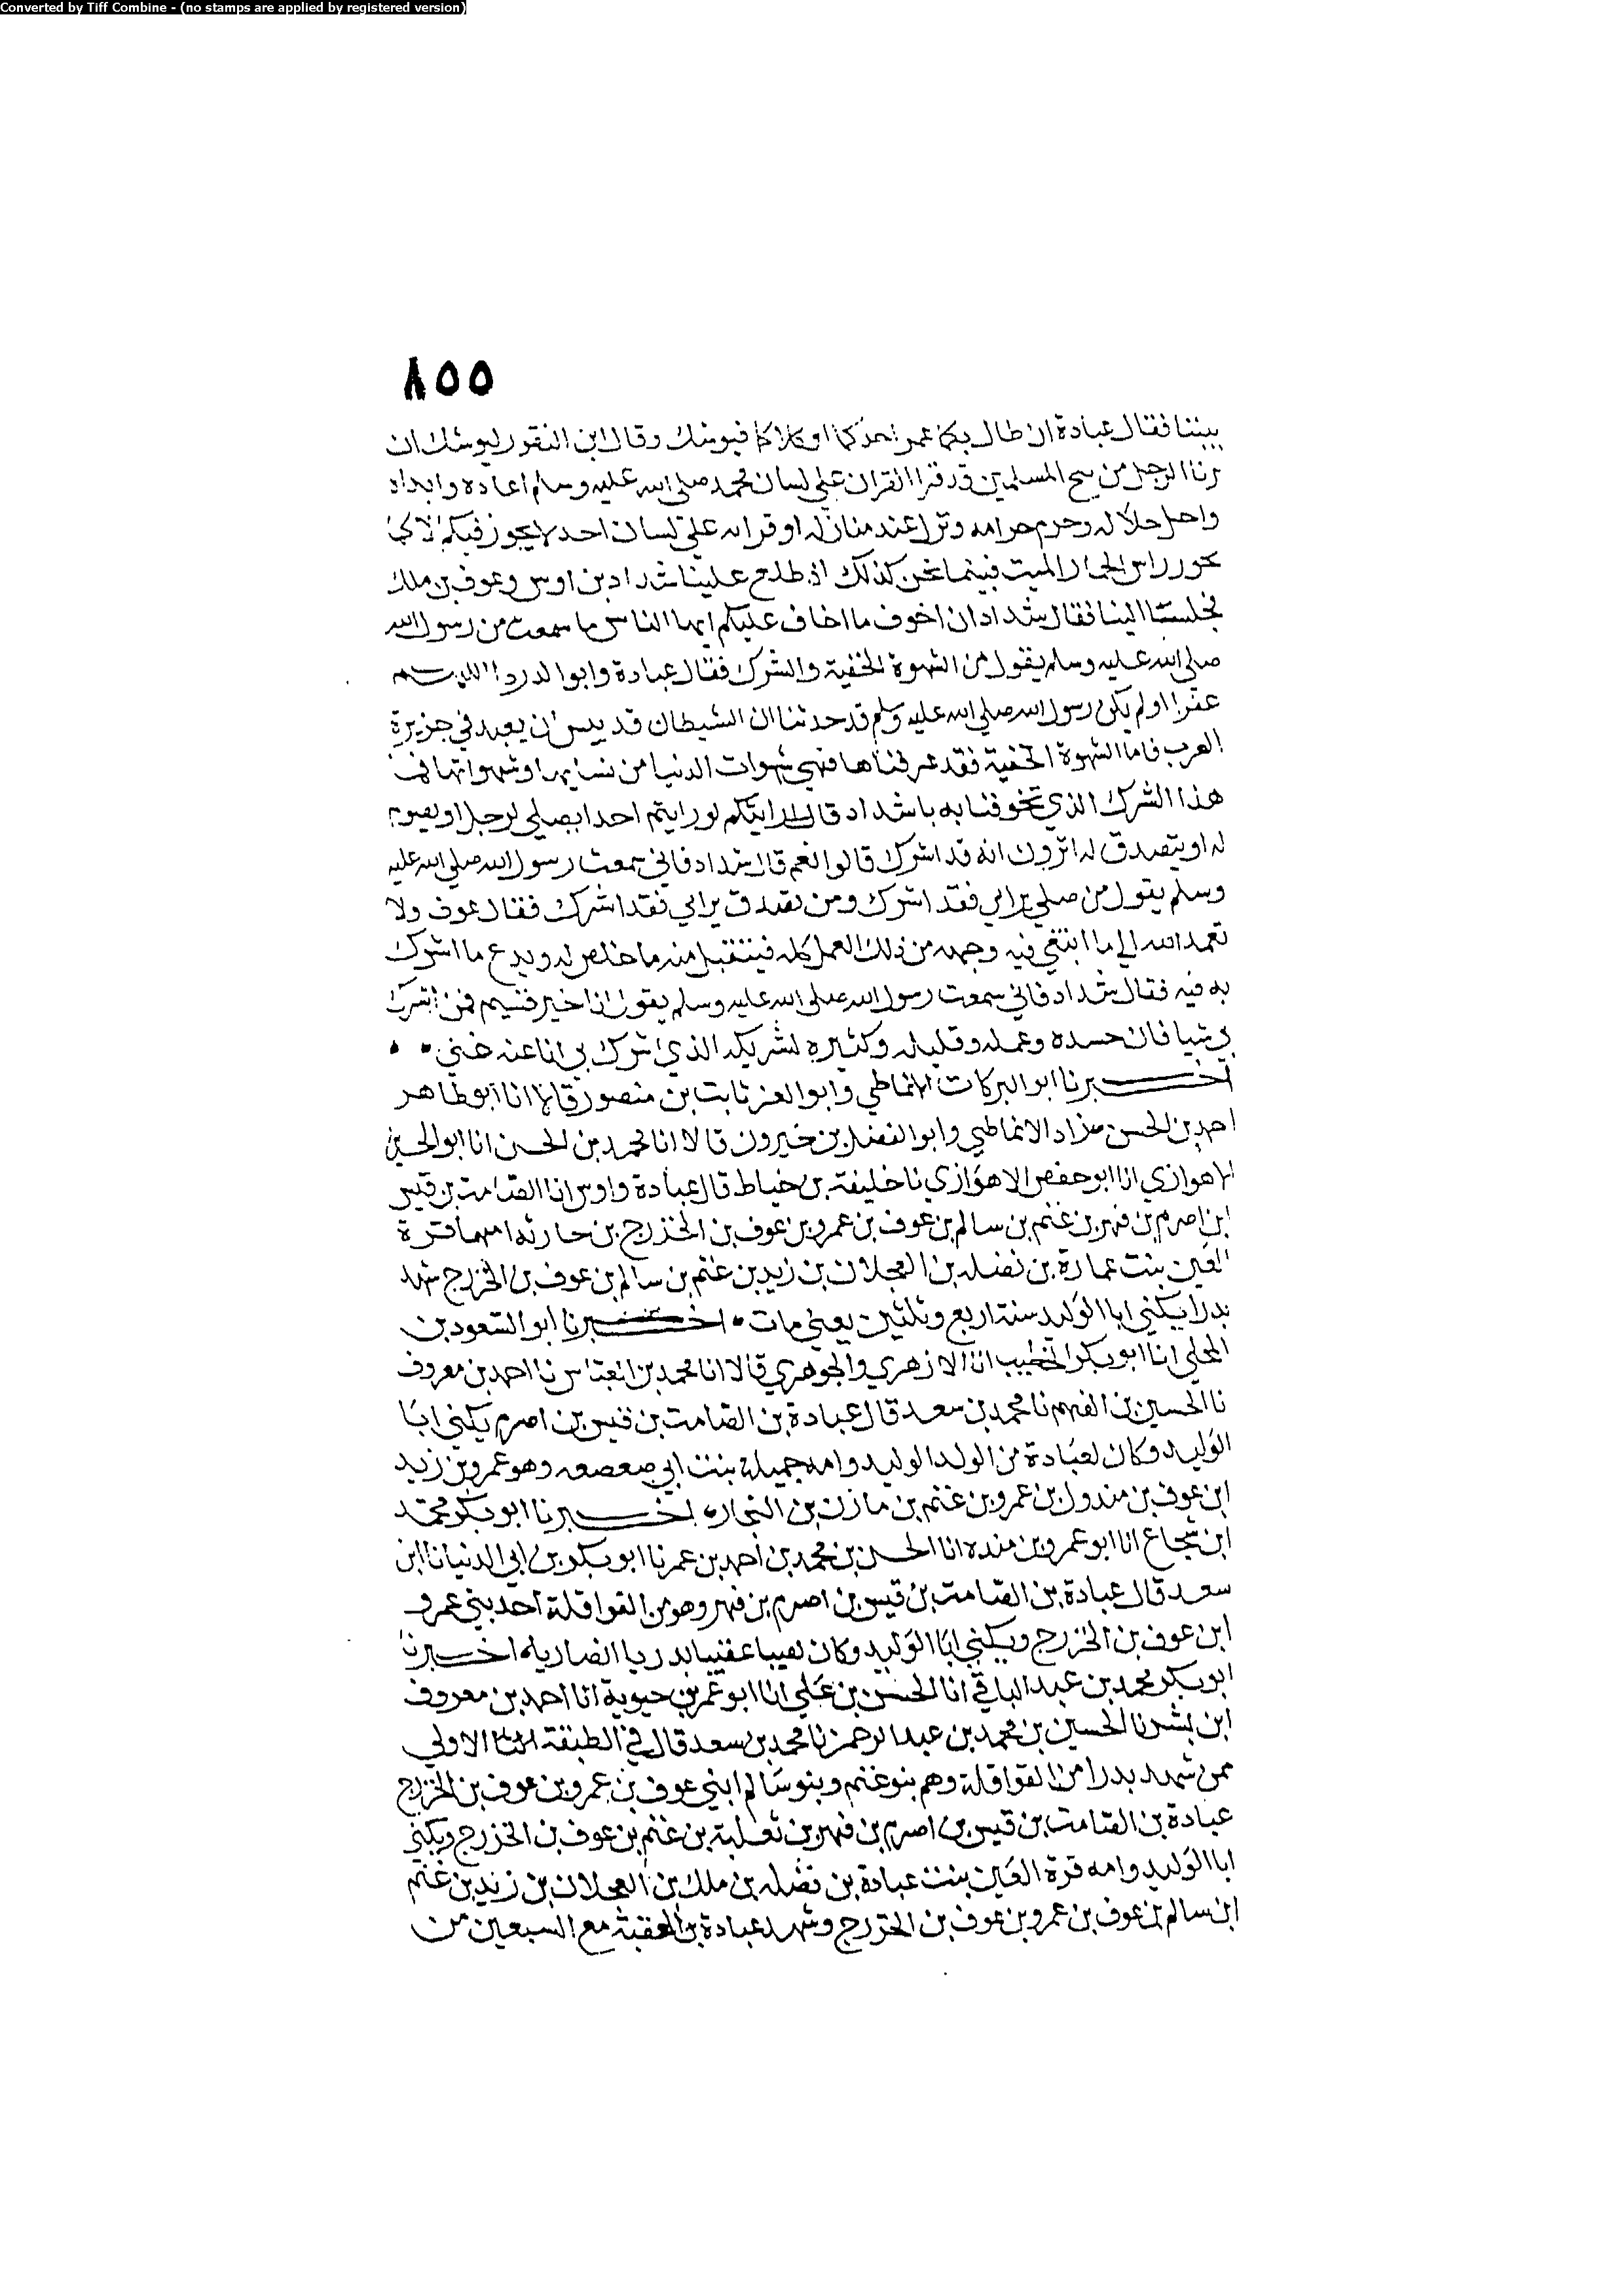 Converted by Tiff Combine - (no stamps are applied by registered version)
٨٥٥
بيننا فقال عبادة ان طال بكما عمر احدكما او كلاكما فيوشك وقال ابن النقور ليوشك ان
ترنا الرجل من ثبج المسلمين قد قرا القران على لسان محمد صلى الله عليه وسلم اعاده وابداه
واحل حلاله وحرم حرامه ونزل عند منازله او قراه على لسان احد لا يجوز فيكم الا كما
يحور راس الحمار الميت فبينما نحن كذلك اذ طلع علينا شداد بن اوس وعوف بن ملك
فجلسا الينا فقال شداد ان اخوف ما اخاف عليكم ايها الناس ما سمعت من رسول الله
صلى الله عليه وسلم يقول من الشهوة الخفية والشرك فقال عبادة وابو الدردا اللهم
غفرا اولم يكن رسول الله صلى الله عليه وسلم قد حدثنا ان الشيطان قد ييس ان يعبد في جزيرة
العرب فاما الشهوة الخفية فقد عرفناها فهي شهوات الدنيا من نسايها وشهواتها فما
هذا الشرك الذي تخوفنا به يا شداد قال ارايتكم لو رايتم احدا يصلي لرجل او يصوم
له او يتصدق له اترون انه قد اشرك قالوا نعم قال شداد فاني سمعت رسول الله صلى الله عليه
وسلم يقول من صلى يرائي فقد اشرك ومن تصدق يرائي فقد اشرك فقال عوف ولا
يعمد الله الى ما ابتغي فيه وجهه من ذلك العمل كله فيتقبل منه ما خلص له ويدع ما اشرك
به فيه فقال شداد فاني سمعت رسول الله صلى الله عليه وسلم يقول انا خير قسيم فمن اشرك
بي شيا فان حسده وعمله وقليله وكثيره لشريكه الذي اشرك بي انا عنه غني
اخبرنا ابو البركات الانماطي وابو العز ثابت بن منصور قالا انا ابو طاهر
احمد بن الحسن زاد الانماطي وابو الفضل بن خيرون قالا انا محمد بن الحسن انا ابو الحسين
الاهوازي انا ابو حفص الاهوازي نا خليفة بن خياط قال عبادة واوس ابنا الصامت بن قيس
ابن اصرم بن فهر بن غنم بن سالم بن عوف بن عمرو بن عوف بن الخزرج بن حارثة امهما قرة
العين بنت عمارة بن نضلة بن العجلان بن زيد بن غنم بن سالم بن عوف بن الخزرج شهد
بدرا يكنى ابا الوليد سنة اربع وثلثين يعني مات اخبرنا ابو السعود بن
المجلي انا ابو بكر الخطيب انا الازهري والجوهري قالا انا محمد بن العباس نا احمد بن معروف
نا الحسين بن الفهم نا محمد بن سعد قال عبادة بن الصامت بن قيس بن اصرم يكنى ابا
الوليد وكان لعبادة من الولد الوليد وامه جميلة بنت ابي صعصعه وهو عمرو بن زيد
ابن عوف بن مبذول بن عمرو بن غنم بن مازن بن النجار اخبرنا ابو بكر محمد
ابن شجاع انا ابو عمرو بن منده انا الحسن بن محمد بن احمد بن عمر نا ابو بكر بن ابي الدنيا نا ابن
سعد قال عبادة بن الصامت بن قيس بن اصرم بن فهر وهو من القواقلة احد بني عمرو
ابن عوف بن الخزرج ويكنى ابا الوليد وكان نقيبا عقبيا بدريا انصاريا اخبرنا
ابو بكر محمد بن عبد الباقي انا الحسن بن علي انا ابو عمر بن حيوية انا احمد بن معروف
ابن بشر نا الحسين بن محمد بن عبد الرحمن نا محمد بن سعد قال في الطبقة الاولى
ممن شهد بدرا من القواقلة وهم بنو غنم وبنو سالم ابني عوف بن عمرو بن عوف بن الخزرج
عبادة بن الصامت بن قيس بن اصرم بن فهر بن ثعلبة بن غنم بن عوف بن الخزرج ويكنى
ابا الوليد وامه قرة العين بنت عبادة بن نضله بن ملك بن العجلان بن زيد بن غنم
ابن سالم بن عوف بن عمرو بن عوف بن الخزرج وشهد عبادة العقبة مع السبعين من